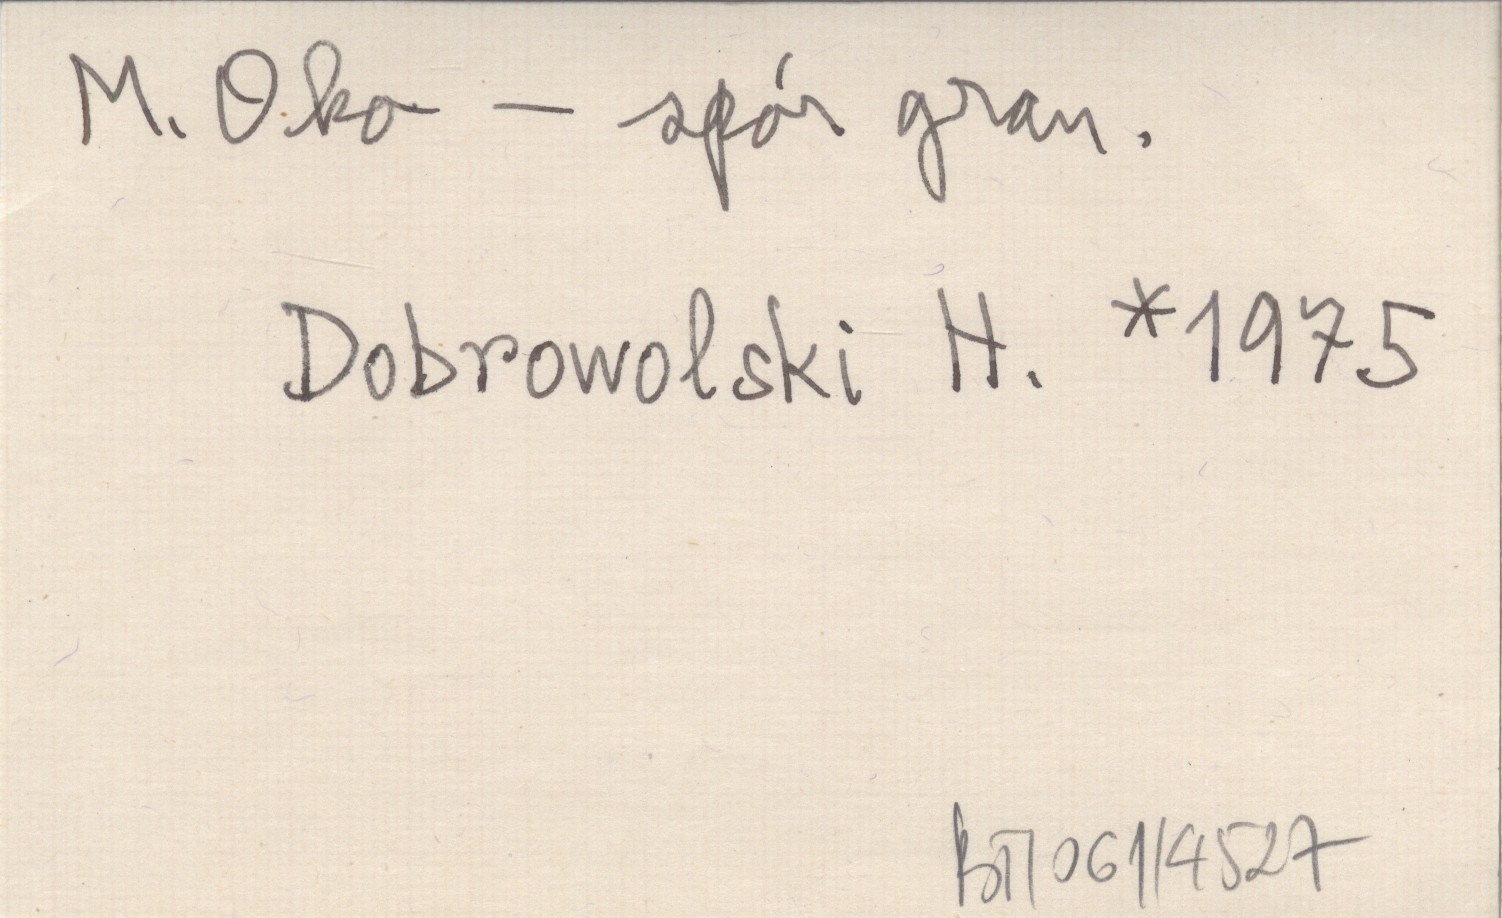 M. Oko – spór gran.
Dobrowolski H. *1975
061/4527